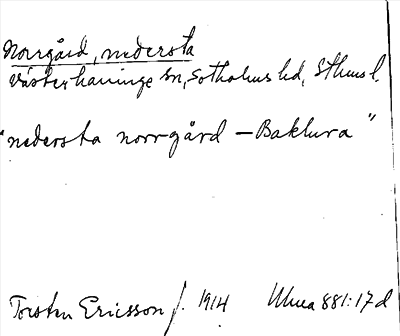 Norrgård, nedersta
Västerhaninge sn, Sotholms hd, Sthms l.
"nedersta norrgård – Baklura"
Torsten Ericsson f. 1914 Uhra 881:17d